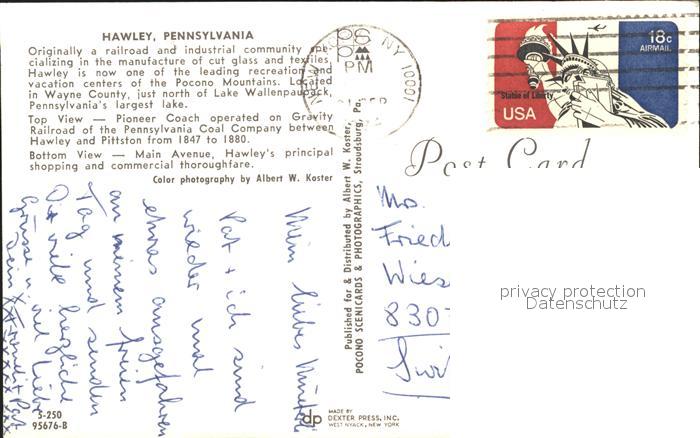 HAWLEY, PENNSYLVANIA
Originally a railroad and industrial community spe-
cializing in the manufacture of cut glass and textiles,
Hawley is now one of the leading recreation and
vacation centers of the Pocono Mountains. Located
in Wayne County, just north of Lake Wallenpaupack,
Pennsylvania's largest lake.
Top View — Pioneer Coach operated on Gravity
Railroad of the Pennsylvania Coal Company between
Hawley and Pittston from 1847 to 1880.
Bottom View — Main Avenue, Hawley's principal
shopping and commercial thoroughfare.
Color photography by Albert W. Koster
USPS
PM
NY 10001
18c
AIRMAIL
Statue of Liberty
USA
Post Card
Published for & Distributed by Albert W. Koster,
POCONO SCENICARDS & PHOTOGRAPHICS, Stroudsburg, Pa.
Mein liebes
Pat + ich sind
wieder mal
etwas ausgefahren
an meinem freien
Tag und senden
Dir viele herzliche
Grüsse u. viel Liebe
Mrs.
Fried
Wies
830
privacy protection
Datenschutz
S-250
95676-B
dp
MADE BY
DEXTER PRESS, INC.
WEST NYACK, NEW YORK